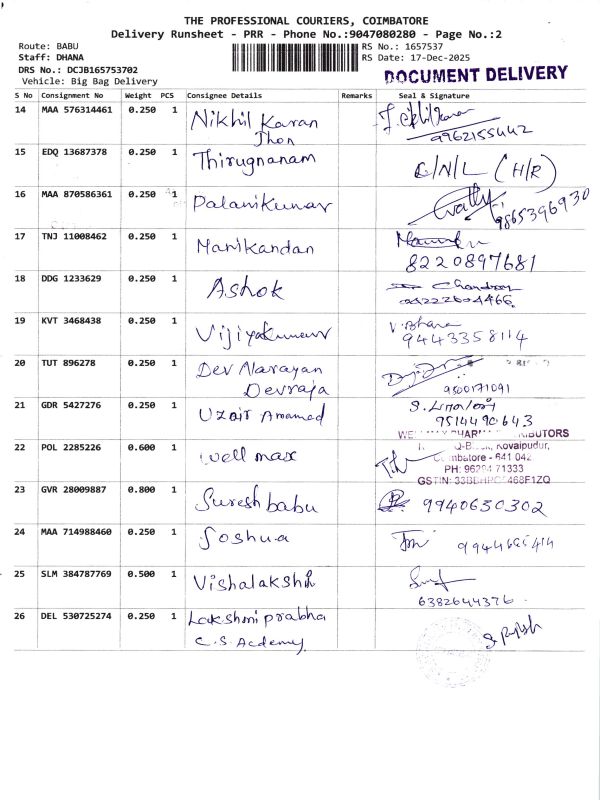 THE PROFESSIONAL COURIERS, COIMBATORE
Delivery Runsheet - PRR - Phone No.:9047080280 - Page No.:2
Route: BABU
Staff: DHANA
DRS No.: DCJB165753702
Vehicle: Big Bag Delivery
RS No.: 1657537
RS Date: 17-Dec-2025
DOCUMENT DELIVERY
S No Consignment No Weight PCS Consignee Details Remarks Seal & Signature
14 MAA 576314461 0.250 1 Nikhil Karan
Jhon
9962155442
15 EDQ 13687378 0.250 1 Thirugnanam C/N/L (H/R)
16 MAA 870586361 0.250 1 Palanikumar 9865396930
17 TNJ 11008462 0.250 1 Manikandan
8220897681
18 DDG 1233629 0.250 1 Ashok
19 KVT 3468438 0.250 1 Vijiyakumar V. Bhara
9443358114
20 TUT 896278 0.250 1 Dev Narayan
Devraja 9500171091
21 GDR 5427276 0.250 1 Uzair Amamed
9514490643
22 POL 2285226 0.600 1 well max
Kovaipudur,
641 042
PH: 71333
GSTIN:
23 GVR 28009887 0.800 1 Sureshbabu 9940630302
24 MAA 714988460 0.250 1 Joshua
25 SLM 384787769 0.500 1 Vishalakshi
6382644376
26 DEL 530725274 0.250 1 Lakshmi prabha
C.S. Acdemy